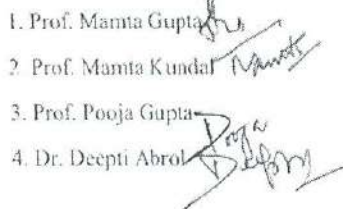 1. Prof. Mamta Gupta
2. Prof. Mamta Kundal
3. Prof. Pooja Gupta
Pooja
4. Dr. Deepti Abrol